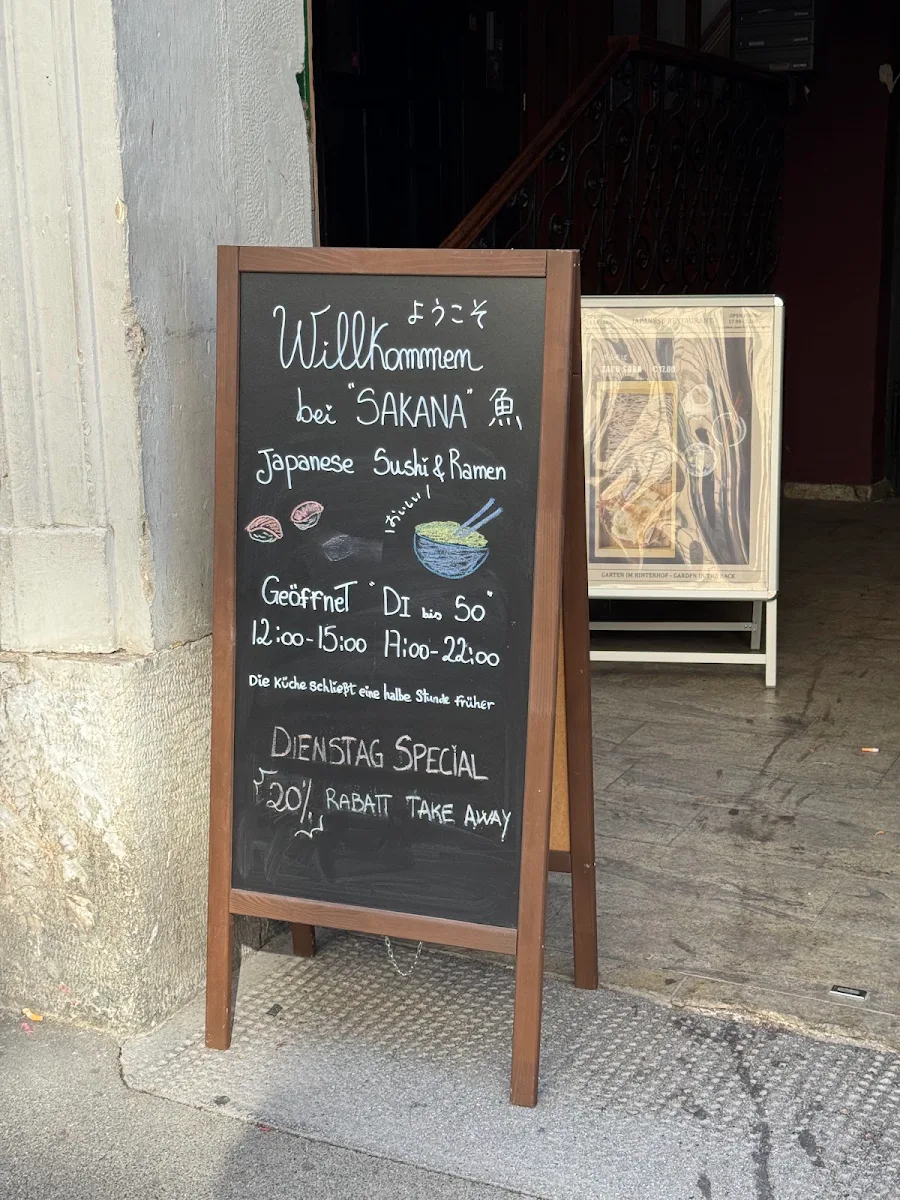 ようこそ
Willkommen
bei "SAKANA" 魚
Japanese Sushi & Ramen
おいしい!
Geöffnet "DI bis SO"
12:00-15:00 17:00-22:00
Die Küche schließt eine halbe Stunde früher
DIENSTAG SPECIAL
20% RABATT TAKE AWAY
JAPANESE RESTAURANT
ZARU SOBA €12.80
GARTEN IM HINTERHOF - GARDEN IN THE BACK